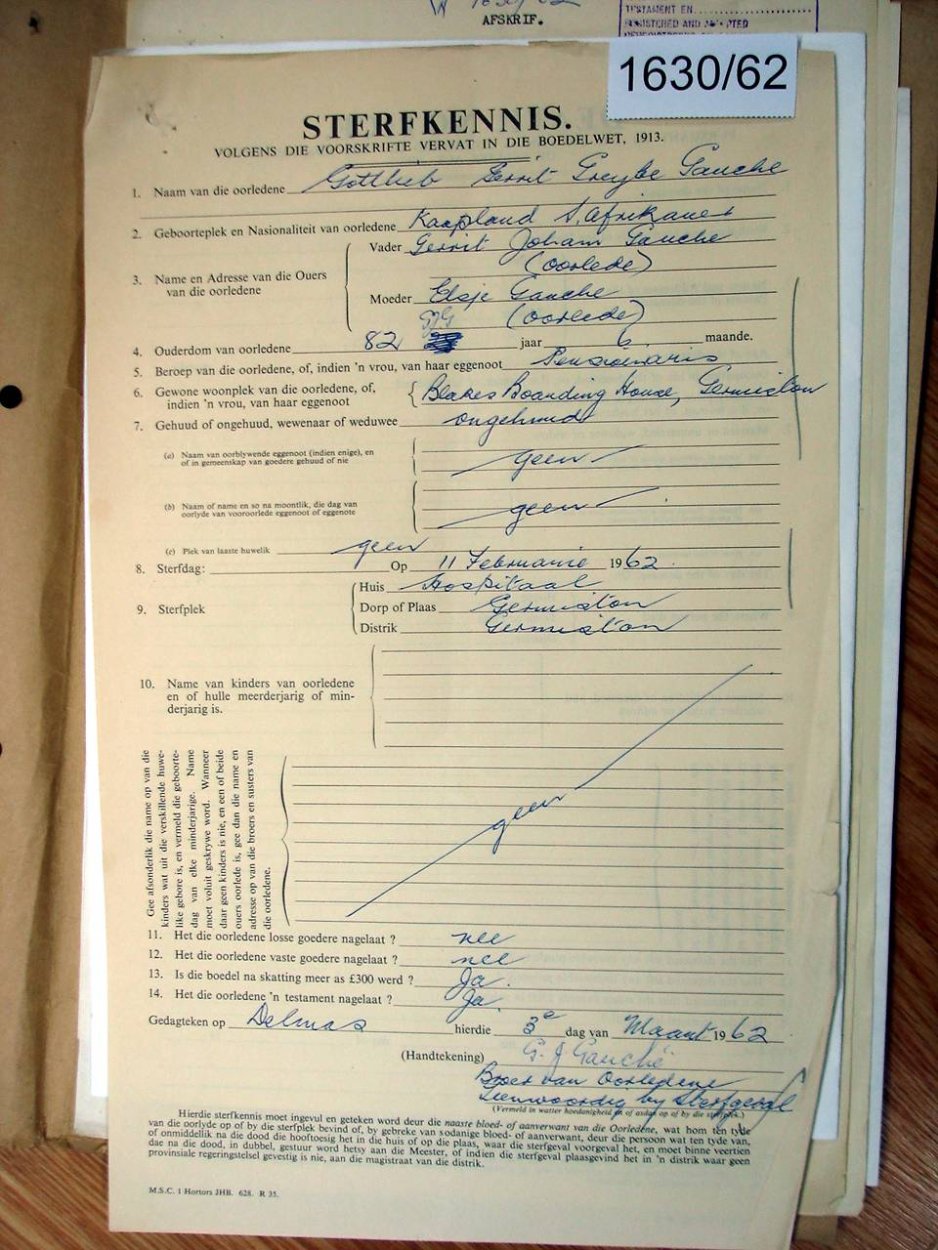 AFSKRIF.
TESTAMENT EN
REGISTERED AND
1630/62
STERFKENNIS.
VOLGENS DIE VOORSKRIFTE VERVAT IN DIE BOEDELWET, 1913.
1. Naam van die oorledene Gottlieb Gerrit Greybe Gauche
2. Geboorteplek en Nasionaliteit van oorledene Kaapland S. Afrikaner
3. Name en Adresse van die Ouers van die oorledene
Vader Gerrit Johann Gauche
(oorlede)
Moeder Elsje Gauche
GJG (oorlede)
4. Ouderdom van oorledene 82 jaar 6 maande.
5. Beroep van die oorledene, of, indien 'n vrou, van haar eggenoot Pensionaris
6. Gewone woonplek van die oorledene, of, indien 'n vrou, van haar eggenoot Blakes Boarding House, Germiston
7. Gehuud of ongehuud, wewenaar of weduwee ongehuud
(a) Naam van oorblywende eggenoot (indien enige), en
of in gemeenskap van goedere gehuud of nie
geen
(b) Naam of name en so na moontlik, die dag van
oorlyde van vooroorlede eggenoot of eggenote
geen
(c) Plek van laaste huwelik geen
8. Sterfdag: Op 11 Februarie 1962.
9. Sterfplek
Huis Hospitaal
Dorp of Plaas Germiston
Distrik Germiston
10. Name van kinders van oorledene
en of hulle meerderjarig of min-
derjarig is.
Gee afsonderlik die name op van die
kinders wat uit die verskillende huwe-
like gebore is, en vermeld die geboorte-
dag van elke minderjarige. Name
moet voluit geskrywe word. Wanneer
daar geen kinders is nie, en een of beide
ouers oorlede is, gee dan die name en
adresse op van die broers en susters van
die oorledene.
geen
11. Het die oorledene losse goedere nagelaat ? nee
12. Het die oorledene vaste goedere nagelaat ? nee
13. Is die boedel na skatting meer as £300 werd ? Ja.
14. Het die oorledene 'n testament nagelaat ? Ja.
Gedagteken op Delmas hierdie 3e dag van Maart 1962
(Handtekening) G. J Gauché
Broer van Oorledene
Teenwoordig by Sterfgeval
(Vermeld in watter hoedanigheid en of asdan op of by die sterfplek.)
Hierdie sterfkennis moet ingevul en geteken word deur die naaste bloed- of aanverwant van die Oorledene, wat hom ten tyde
van die oorlyde op of by die sterfplek bevind of, by gebreke van sodanige bloed- of aanverwant, deur die persoon wat ten tyde van,
of onmiddellik na die dood die hooftoesig het in die huis of op die plaas, waar die sterfgeval voorgeval het, en moet binne veertien
dae na die dood, in dubbel, gestuur word hetsy aan die Meester, of indien die sterfgeval plaasgevind het in 'n distrik waar geen
provinsiale regeringsetel gevestig is nie, aan die magistraat van die distrik.
M.S.C. 1 Hortors JHB. 628. R 35.